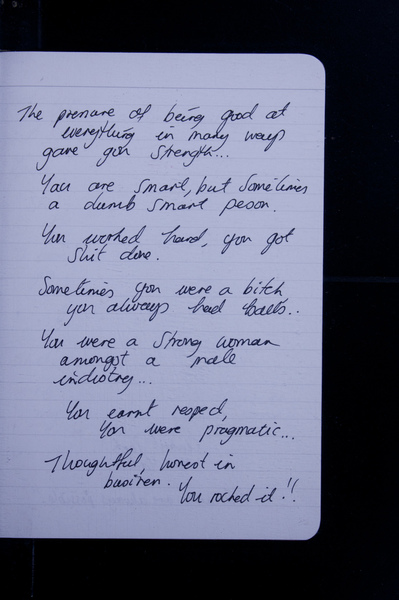 The pressure of being good at
everything in many ways
gave you strength...
You are smart, but sometimes
a dumb smart peson.
You worked hard, you got
shit done.
Sometimes you were a bitch
you always had balls..
You were a strong woman
amongst a male
indistrey...
You earnt respect,
You were pragmatic...
Thoughtful, honest in
busines.
You rocked it!!